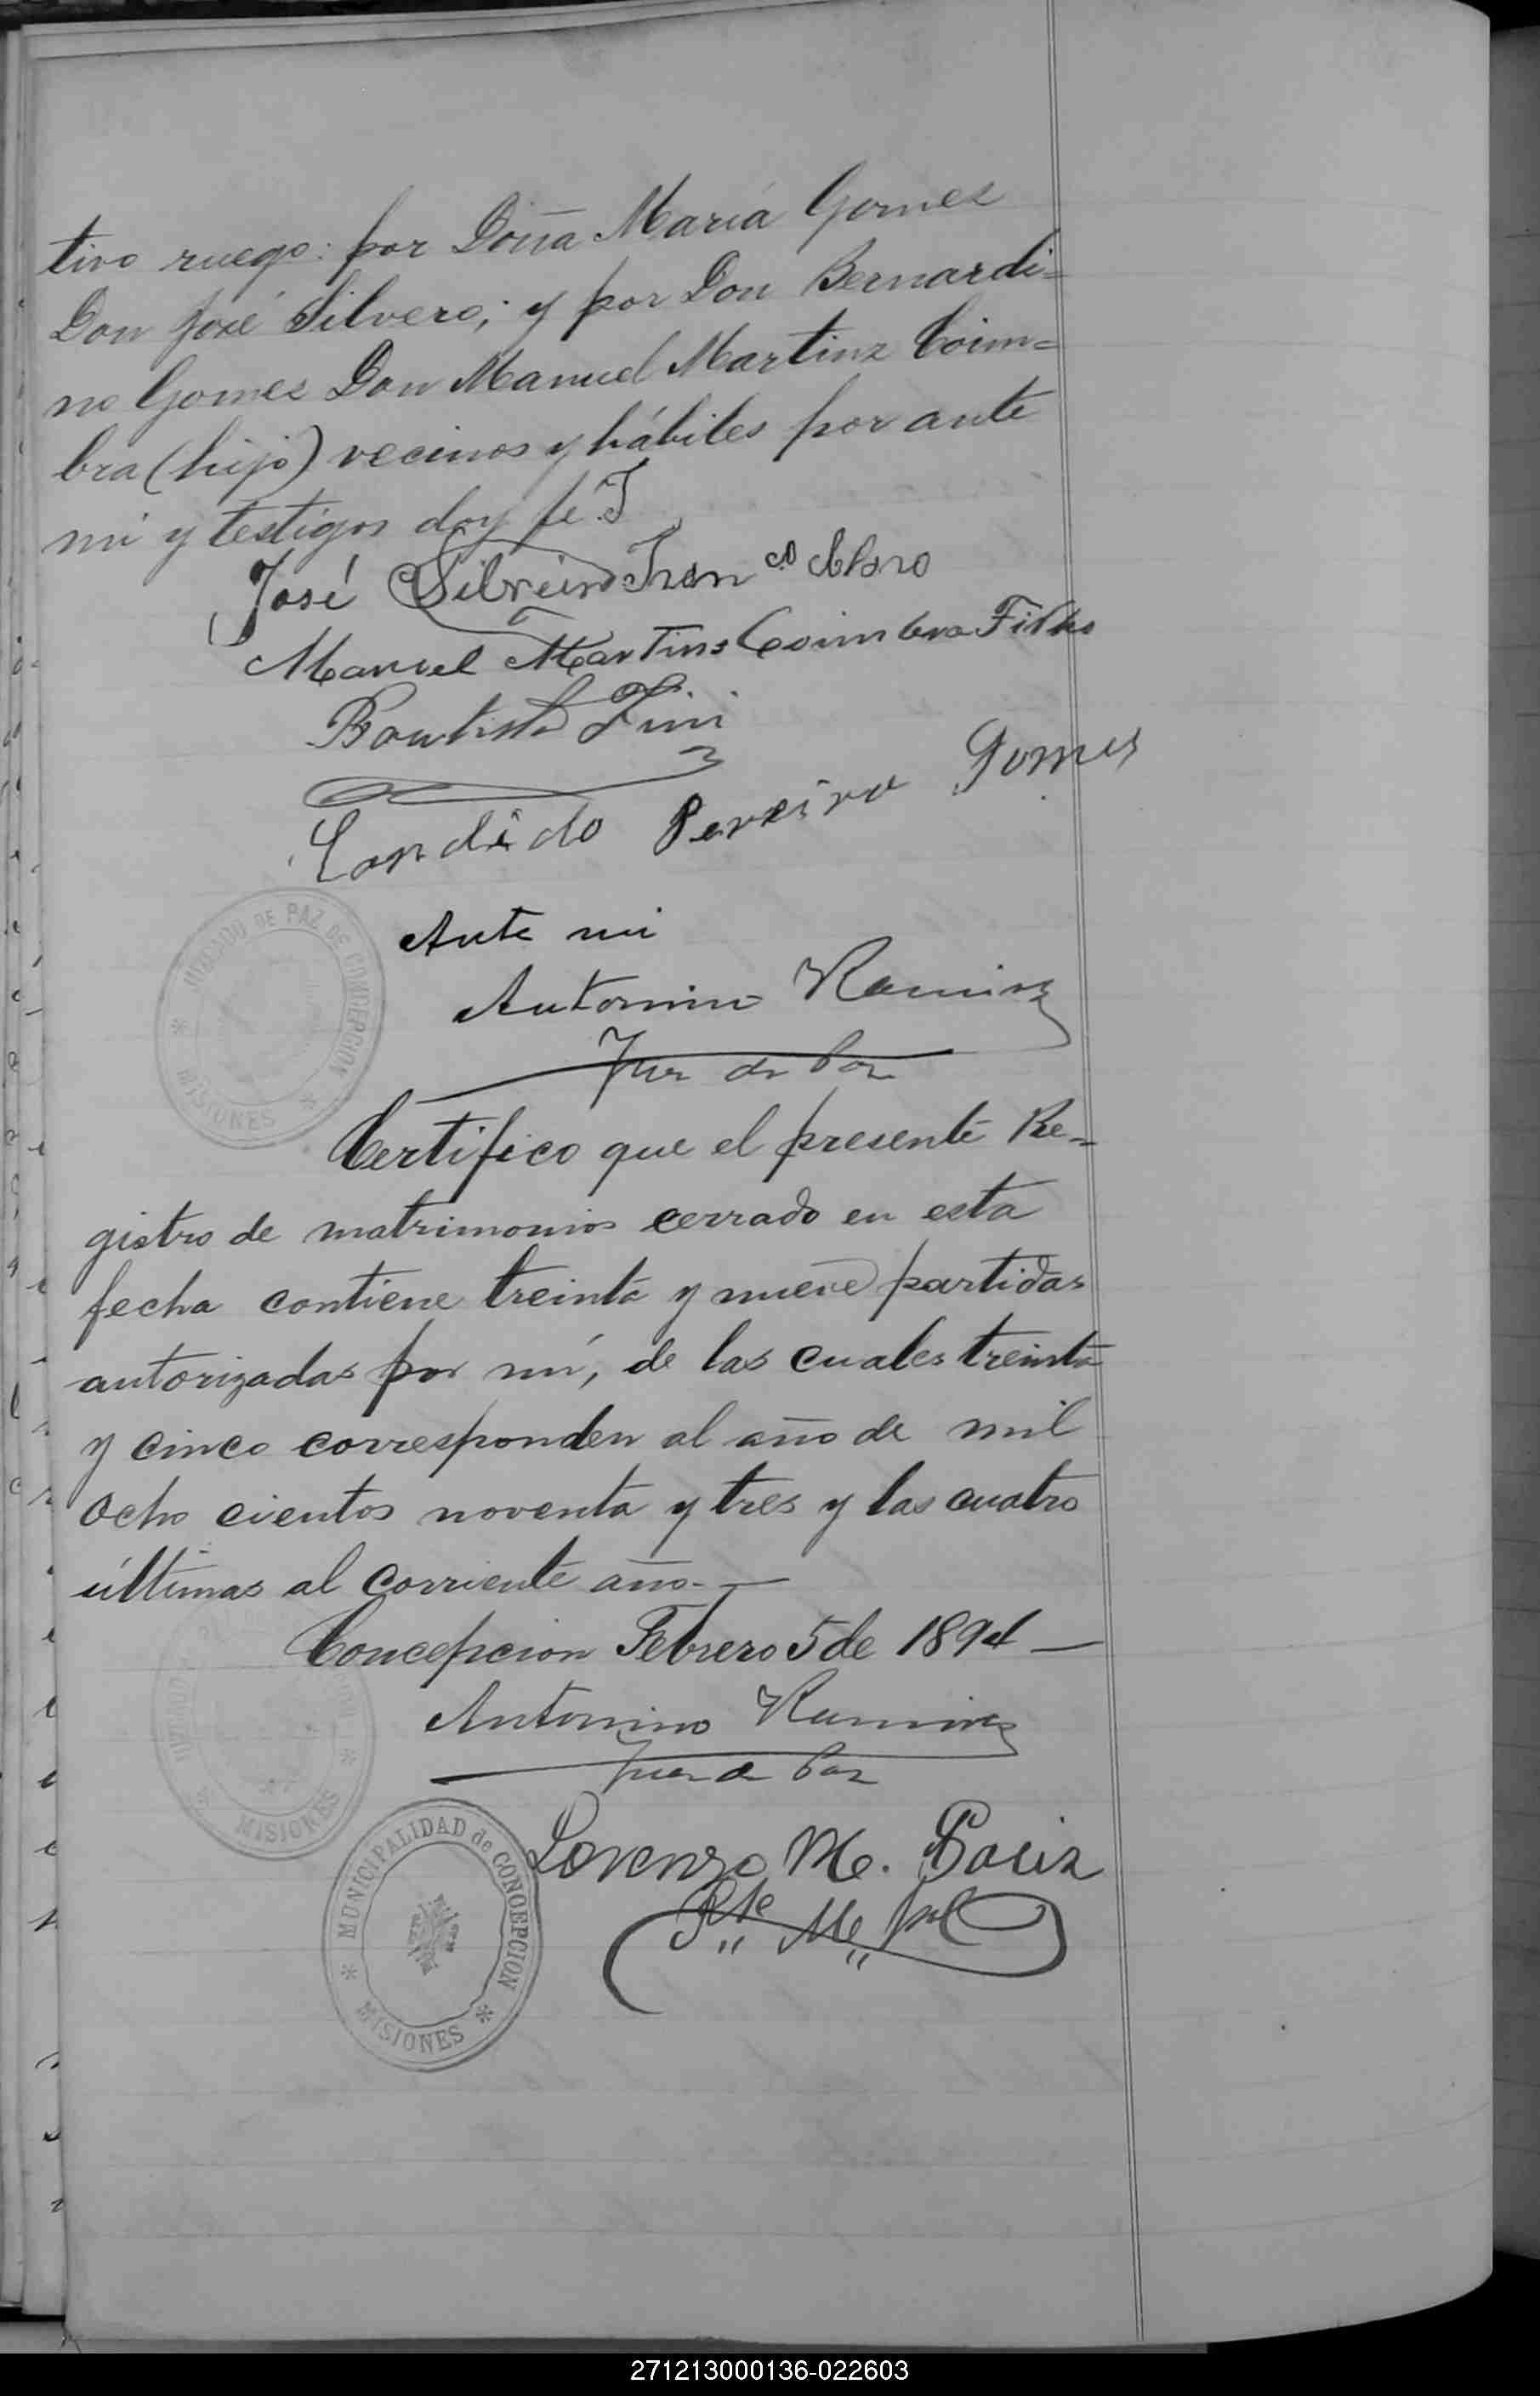 tivo ruego: por Doña María Gomez
Don José Silvero; y por Don Bernardi=
no Gomez Don Manuel Martinz Coim=
bra (hijo) vecinos y hábiles por ante
mi y testigos doy fé.
José Silveira Fran co Claro
Manuel Martins Coimbra Filho
Bautista Zini
Candido Pereira Gomes
JUZGADO DE PAZ DE CONCEPCION
MISIONES
Ante mi
Antonino Ramirez
Juez de Paz
Certifico que el presente Re-
gistro de matrimonios cerrado en esta
fecha contiene treinta y nueve partidas
autorizadas por mí, de las cuales treinta
y cinco corresponden al año de mil
ocho cientos noventa y tres y las cuatro
últimas al corriente año.—
Concepcion Febrero 5 de 1894—
Antonino Ramirez
Juez de Paz
MISIONES
Lorenzo M.
Pte Mepal
MUNICIPALIDAD de CONCEPCION
MISIONES
271213000136-022603